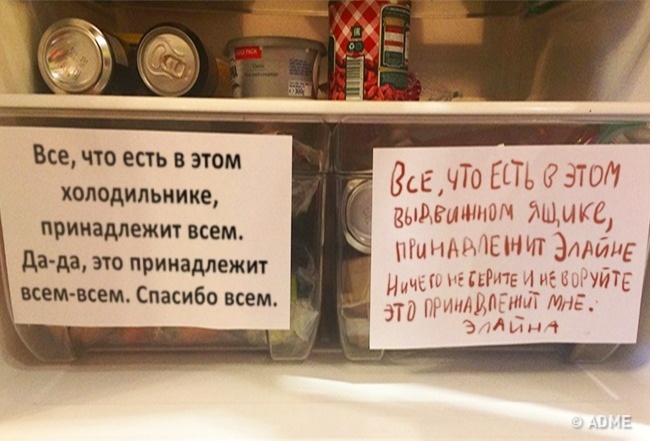 Все, что есть в этом
холодильнике,
принадлежит всем.
Да-да, это принадлежит
всем-всем. Спасибо всем.
Все, что есть в этом
выдвижном ящике,
принадлежит Элайне
Ничего не берите и не воруйте
это принадлежит мне.
Элайна
© ADME